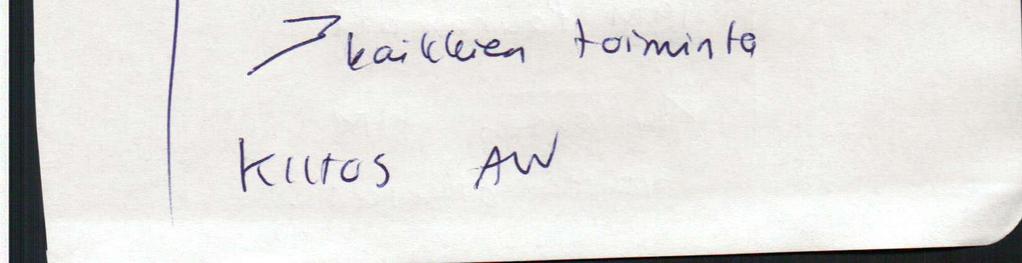 kaikkien toiminta
Kiitos AW